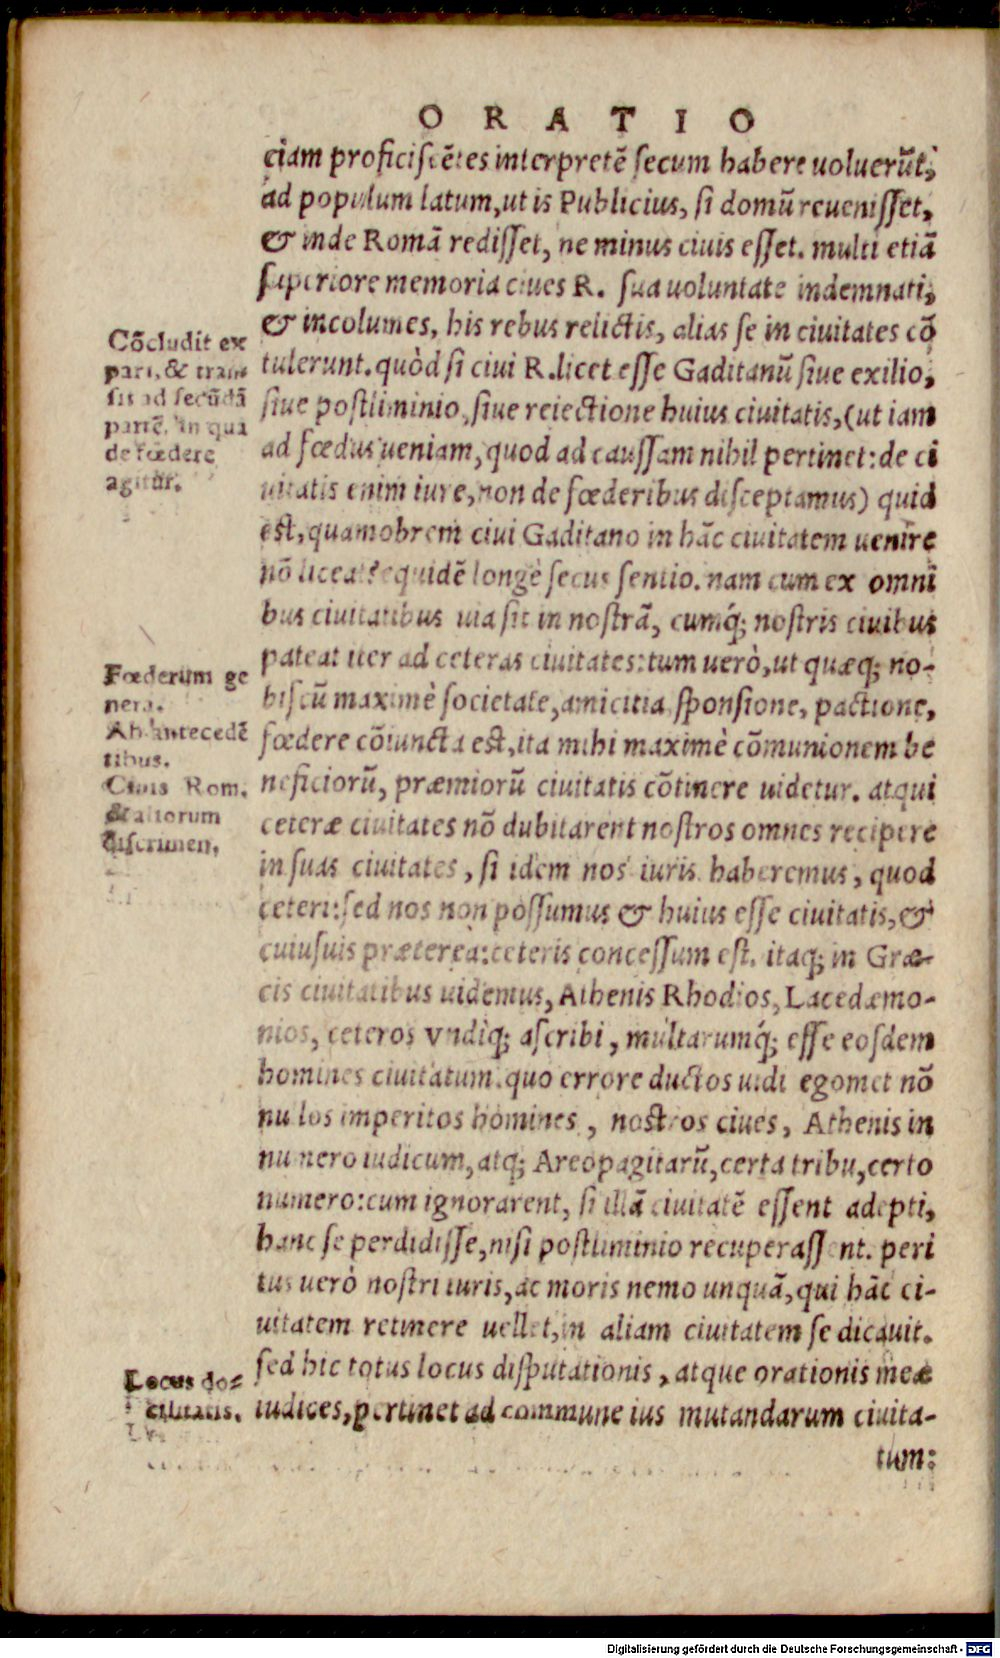 ORATIO
ciam proficiscētes interpretē secum habere uoluerūt,
ad populum latum, ut is Publicius, si domū reuenisset,
& inde Romā redisset, ne minus ciuis esset. multi etiā
superiore memoria ciues R. sua uoluntate indemnati,
& incolumes, his rebus relictis, alias se in ciuitates cō
tulerunt. quòd si ciui R. licet esse Gaditanū siue exilio,
siue postliminio, siue reiectione huius ciuitatis, (ut iam
ad fœdus ueniam, quod ad caussam nihil pertinet: de ci
uitatis enim iure, non de fœderibus disceptamus) quid
est, quamobrem ciui Gaditano in hāc ciuitatem uenire
nō liceat? equidē longè secus sentio. nam cum ex omni
bus ciuitatibus uia sit in nostrā, cumq́; nostris ciuibus
pateat iter ad ceteras ciuitates: tum uerò, ut quæq; no-
biscū maximè societate, amicitia sponsione, pactione,
fœdere cōiuncta est, ita mihi maximè cōmunionem be
neficiorū, præmiorū ciuitatis cōtinere uidetur. atqui
ceteræ ciuitates nō dubitarent nostros omnes recipere
in suas ciuitates, si idem nos iuris haberemus, quod
ceteri: sed nos non possumus & huius esse ciuitatis, &
cuiusuis præterea: ceteris concessum est. itaq; in Græ-
cis ciuitatibus uidemus, Athenis Rhodios, Lacedæmo-
nios, ceteros vndiq; ascribi, multarumq́; esse eosdem
homines ciuitatum. quo errore ductos uidi egomet nō
nullos imperitos homines, nostros ciues, Athenis in
numero iudicum, atq; Areopagitarū, certa tribu, certo
numero: cum ignorarent, si illā ciuitatē essent adepti,
hanc se perdidisse, nisi postliminio recuperassent. peri
tus uerò nostri iuris, ac moris nemo unquā, qui hāc ci-
uitatem retinere uellet, in aliam ciuitatem se dicauit.
sed hic totus locus disputationis, atque orationis meæ
iudices, pertinet ad commune ius mutandarum ciuita-
tum:
Cōcludit ex
pari, & tran
sit ad secūdā
partē, in qua
de fœdere
agitur.
Fœderum ge
nera.
Ab antecedē
tibus.
Ciuis Rom.
& aliorum
discrimen.
Locus do-
cilitatis.
Digitalisierung gefördert durch die Deutsche Forschungsgemeinschaft - DFG